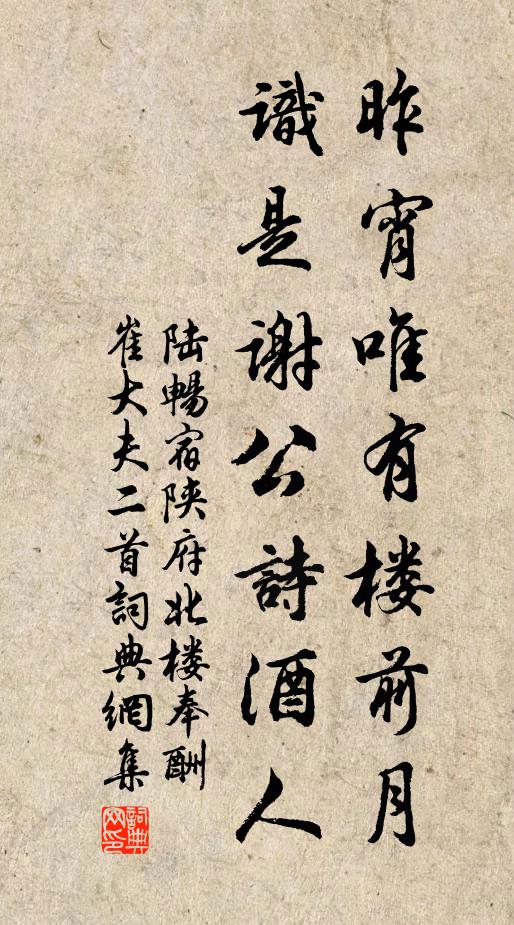 昨宵唯有楼前月
識是謝公詩酒人
陆暢宿陕府北楼奉酬
崔大夫二首詞典網集
詞典
网印